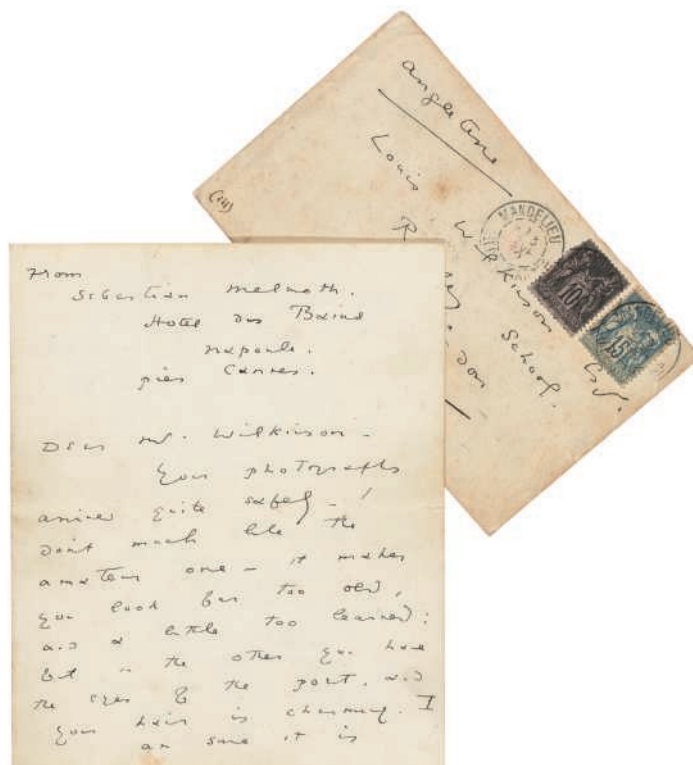 Angleterre
Louis Wilkinson Esq.
School
MANDELIEU
10
15
From
Sebastian Melmoth.
Hotel des Bains
Napoule.
près Cannes.
Dear Mr. Wilkinson –
Your photographs
arrived quite safely – I
don't much like the
amateur one – it makes
you look far too old,
and a little too learned:
but in the other you have
the eyes of the poet, and
your hair is charming. I
am sure it is